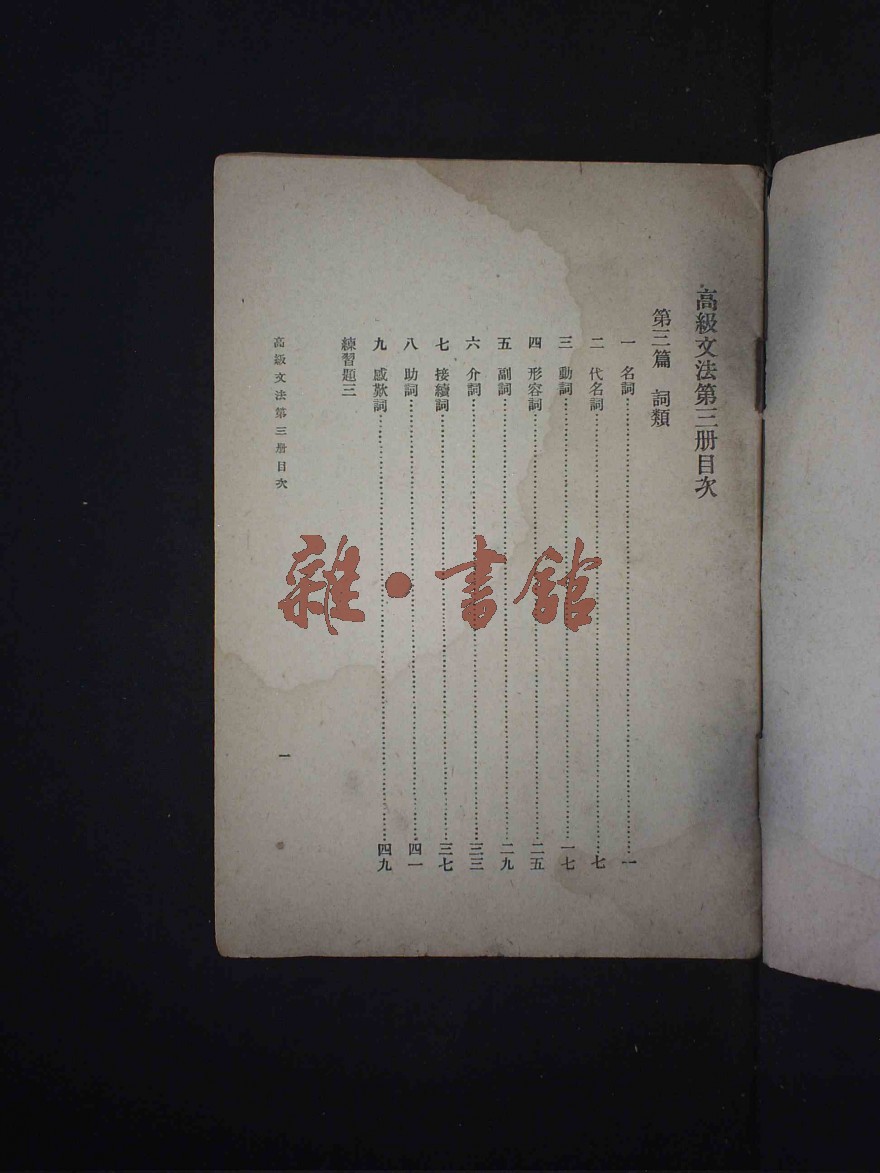 高級文法第三册目次
第三篇　詞類
一　名詞……一
二　代名詞……七
三　動詞……一七
四　形容詞……二五
五　副詞……二九
六　介詞……三三
七　接續詞……三七
八　助詞……四一
九　感歎詞……四九
練習題三
高級文法第三册目次
一
雜・書館